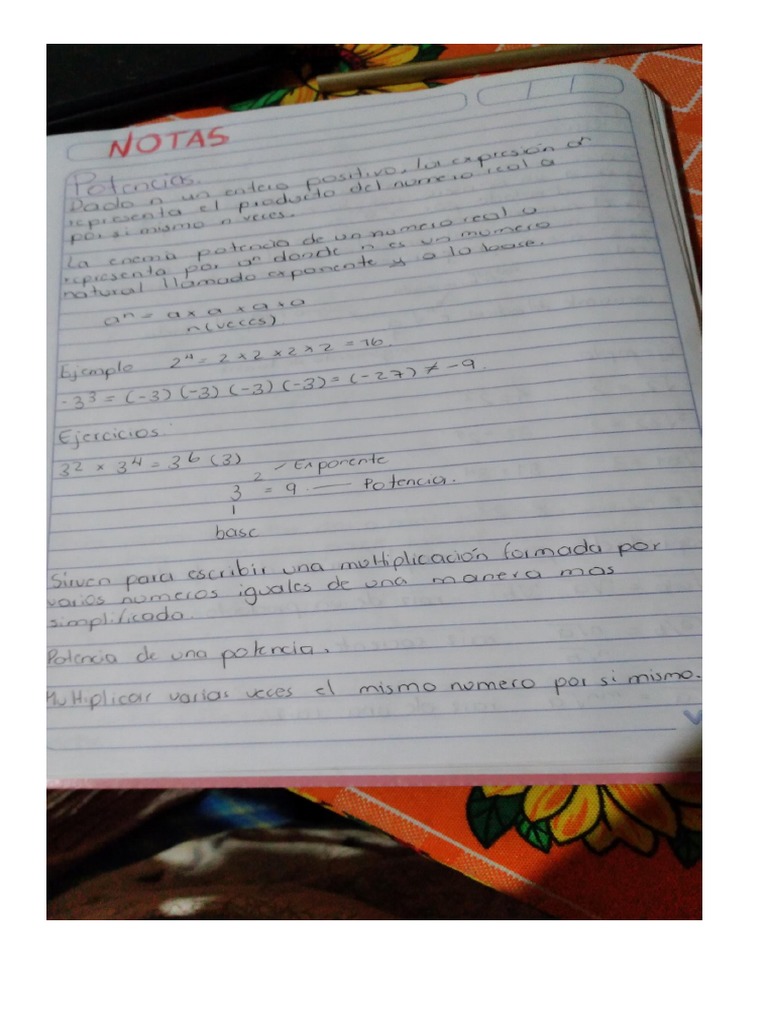 NOTAS
Potencias.
Dado n un entero positivo, la expresión aⁿ
representa el producto del numero real a
por si mismo n veces.
La enema potencia de un numero real a
representa por aⁿ donde n es un numero
natural llamado exponente y a la base.
aⁿ = a x a x a x a
n(veces)
Ejemplo 2⁴ = 2 x 2 x 2 x 2 = 16.
-3³ = (-3) (-3) (-3) (-3) = (-27) ≠ -9.
Ejercicios
3² x 3⁴ = 3⁶ (3)
3² = 9 — Potencia.
Exponente
base
Sirven para escribir una multiplicación formada por
varios numeros iguales de una manera mas
simplificada.
Potencia de una potencia.
Multiplicar varias veces el mismo numero por si mismo.